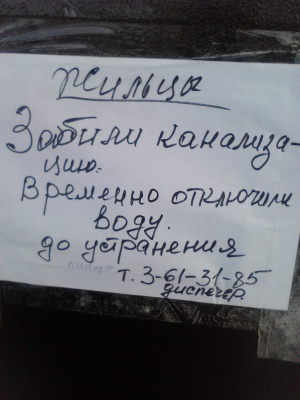 Жильцы
Забили канализа-
цию.
Временно отключили
воду.
до устранения
т. 3-61-31-85
диспечер.